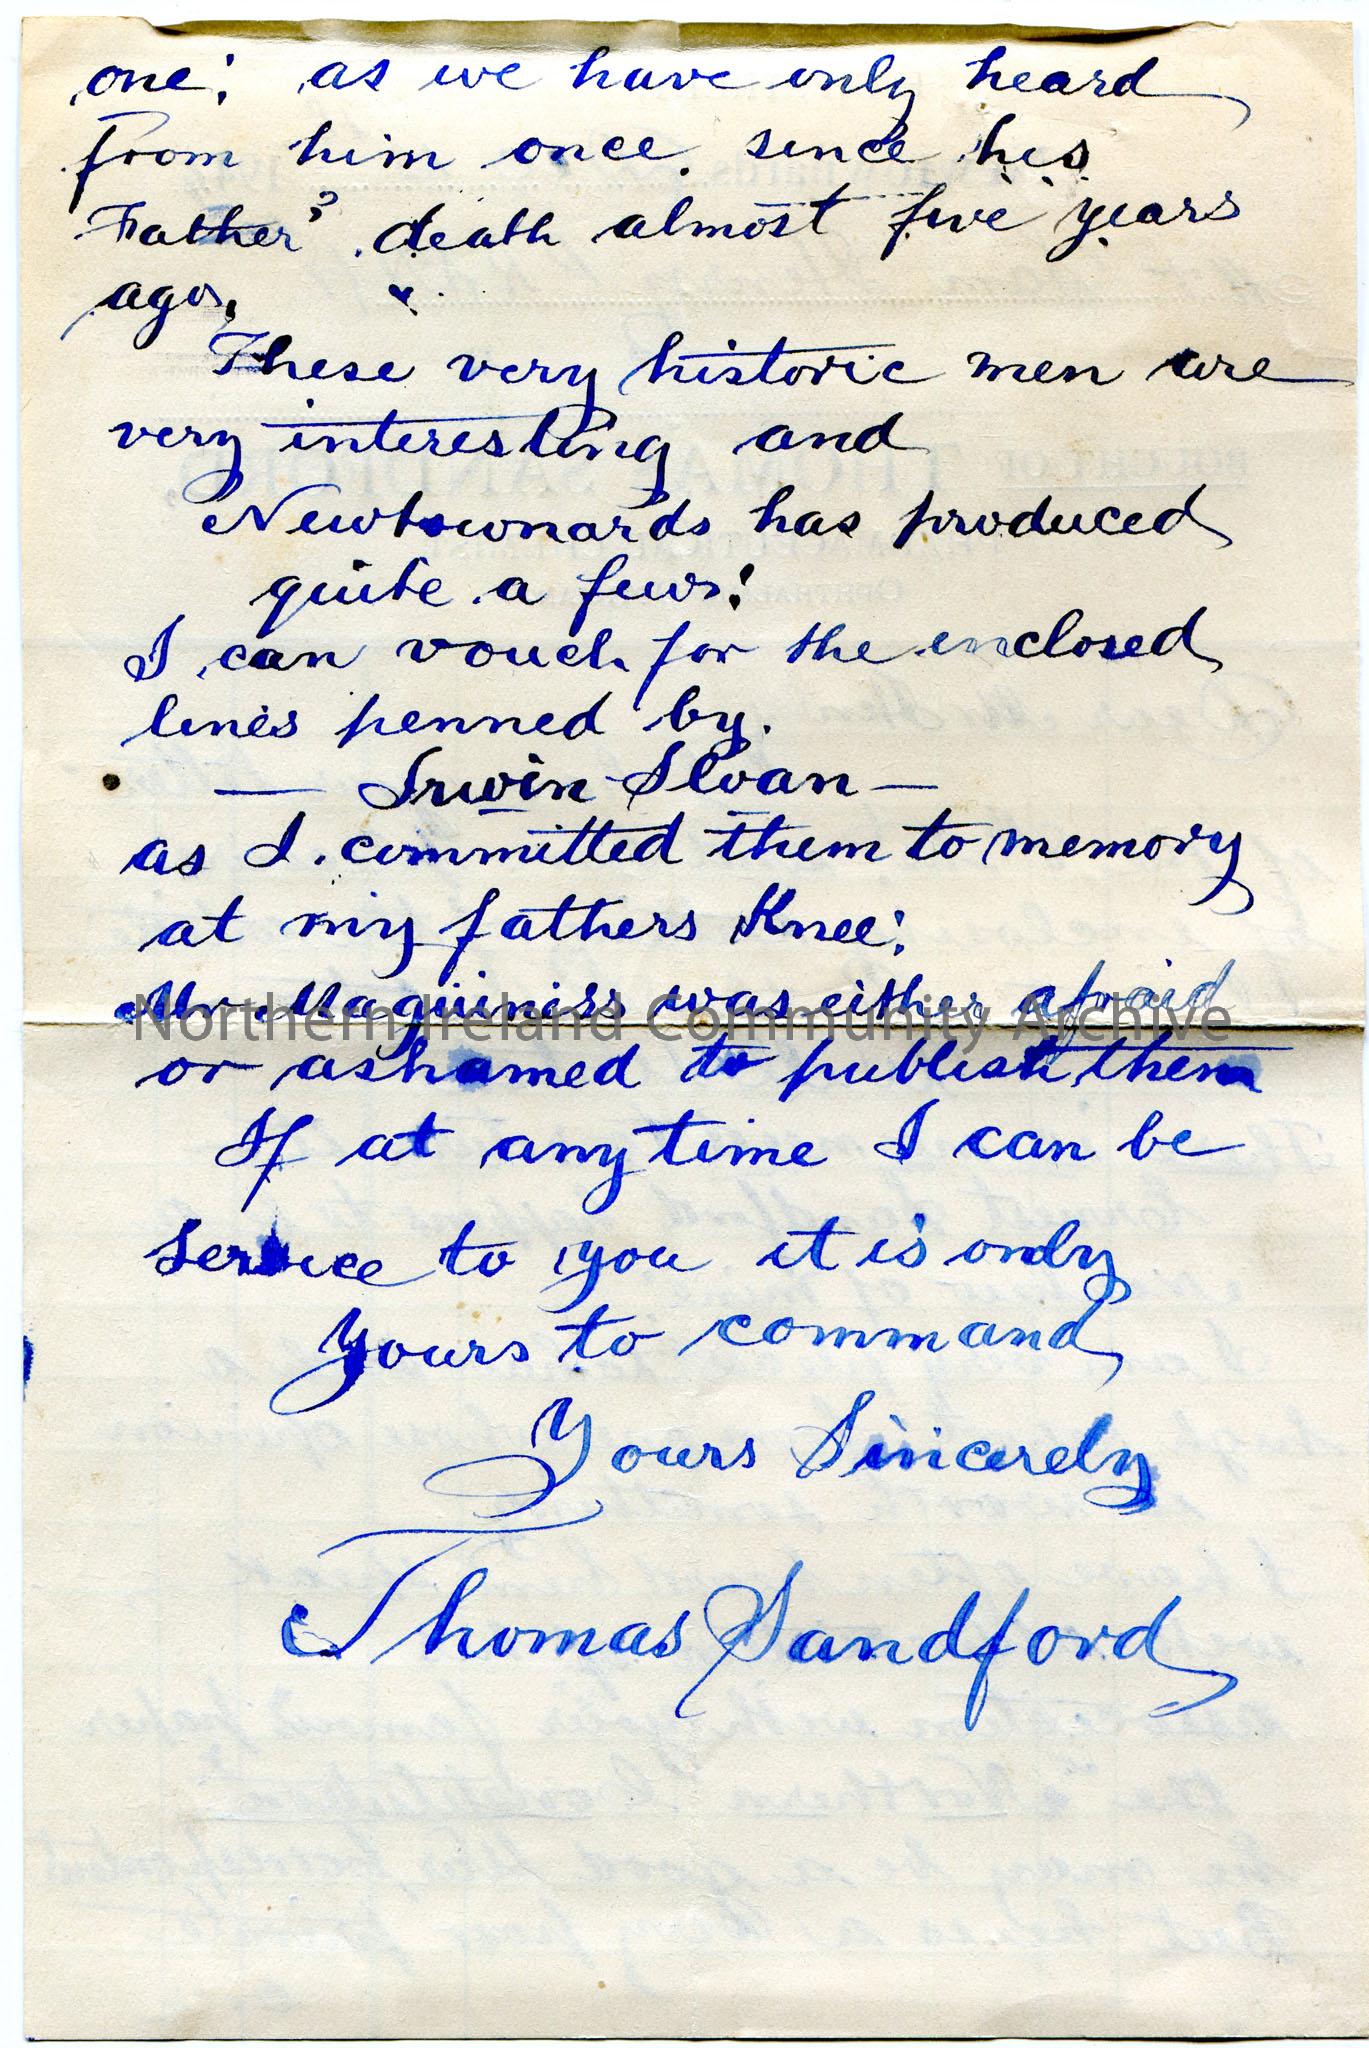 one; as we have only heard
from him once since his
Father's death almost five years
ago,
These very historic men are
very interesting and
Newtownards has produced
quite a few;
I can vouch for the enclosed
lines penned by.
— Irwin Sloan —
as I committed them to memory
at my fathers Knee;
Mr Maguiniss was either afraid
Northern Ireland Community Archive
or ashamed to publish them
If at any time I can be
service to you it is only
yours to command
Yours Sincerely
Thomas Sandford